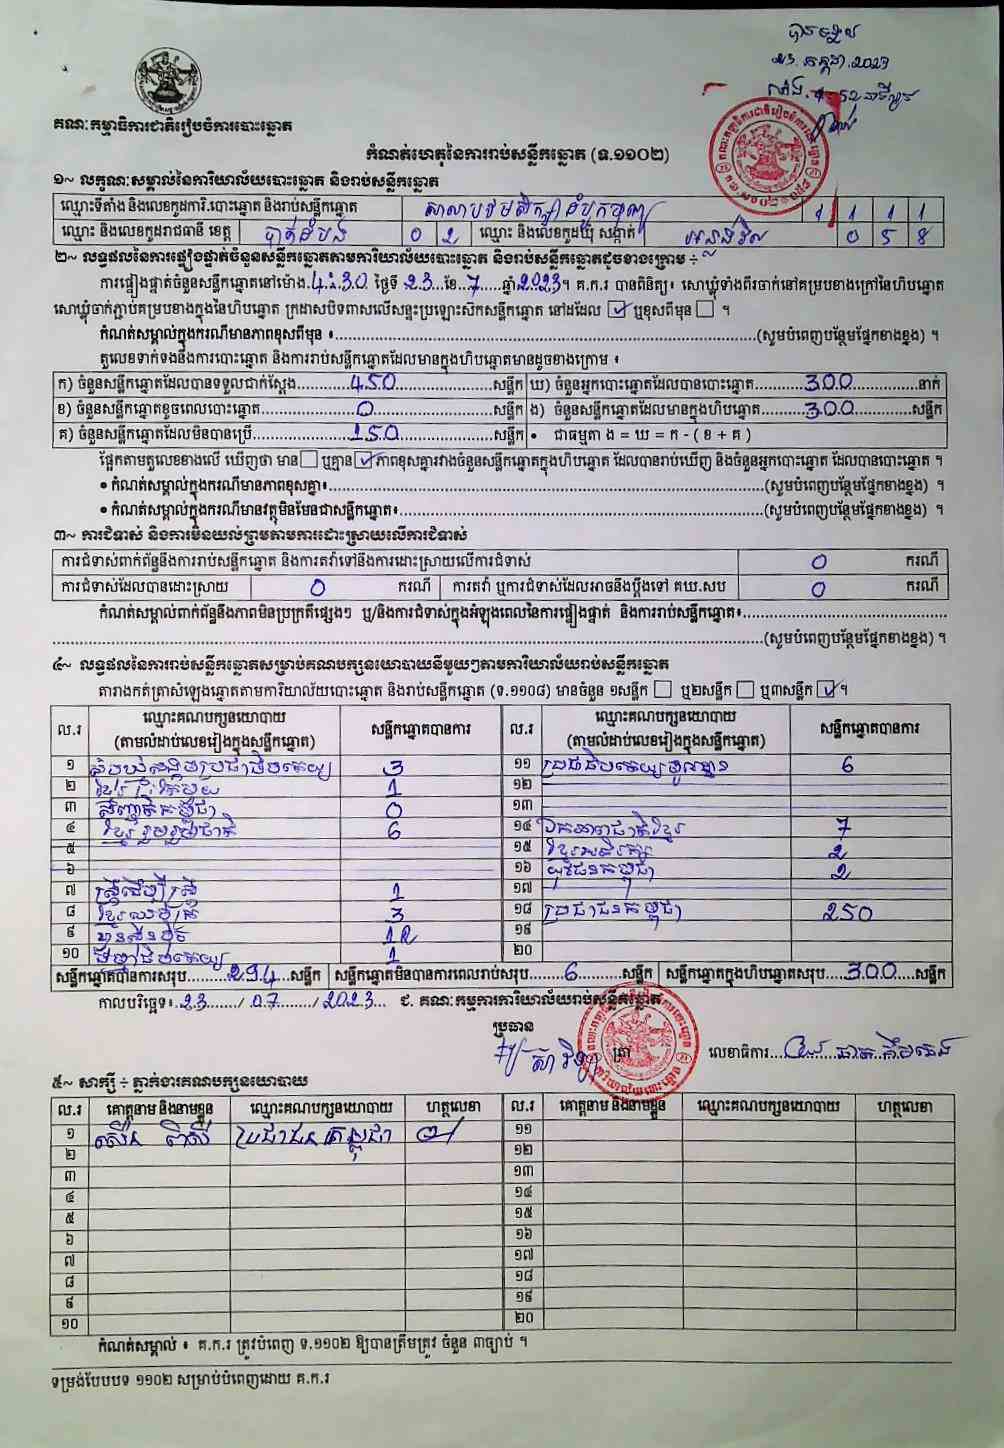 បានឃើញ
២៣.កក្កដា.2023
គណៈកម្មាធិការជាតិរៀបចំការបោះឆ្នោត
កំណត់ហេតុនៃការរាប់សន្លឹកឆ្នោត (ទ.១១០២)
១~ លក្ខណៈសម្គាល់នៃការិយាល័យបោះឆ្នោត និងរាប់សន្លឹកឆ្នោត
ឈ្មោះទីតាំង និងលេខកូដការិ.បោះឆ្នោត និងរាប់សន្លឹកឆ្នោត សាលាបឋមសិក្សា
ឈ្មោះ និងលេខកូដរាជធានី ខេត្ត បាត់ដំបង 0 2 ឈ្មោះ និងលេខកូដឃុំ សង្កាត់ អន្លង់វិល 0 5 8
២~ លទ្ធផលនៃការផ្ទៀងផ្ទាត់ចំនួនសន្លឹកឆ្នោតតាមការិយាល័យបោះឆ្នោត និងរាប់សន្លឹកឆ្នោតដូចខាងក្រោម ÷
ការផ្ទៀងផ្ទាត់ចំនួនសន្លឹកឆ្នោតនៅម៉ោង.4:30 ថ្ងៃទី 23 ខែ 7 ឆ្នាំ 2023។ គ.ក.រ បានពិនិត្យ៖ សោឃ្លុំទាំងពីរចាក់នៅគម្របខាងក្រៅនៃហិបឆ្នោត
សោឃ្លុំចាក់ភ្ជាប់គម្របខាងក្នុងនៃហិបឆ្នោត ក្រដាសបិទពាសលើសន្ទះប្រឡោះស៊កសន្លឹកឆ្នោត នៅដដែល ☑ ឬខុសពីមុន ☐ ។
កំណត់សម្គាល់ក្នុងករណីមានភាពខុសពីមុន ៖ (សូមបំពេញបន្ថែមផ្នែកខាងខ្នង) ។
តួលេខទាក់ទងនឹងការបោះឆ្នោត និងការរាប់សន្លឹកឆ្នោតដែលមានក្នុងហិបឆ្នោតមានដូចខាងក្រោម ៖
ក) ចំនួនសន្លឹកឆ្នោតដែលបានទទួលជាក់ស្ដែង 450 សន្លឹក ឃ) ចំនួនអ្នកបោះឆ្នោតដែលបានបោះឆ្នោត 300 នាក់
ខ) ចំនួនសន្លឹកឆ្នោតខូចពេលបោះឆ្នោត 0 សន្លឹក ង) ចំនួនសន្លឹកឆ្នោតដែលមានក្នុងហិបឆ្នោត 300 សន្លឹក
គ) ចំនួនសន្លឹកឆ្នោតដែលមិនបានប្រើ 150 សន្លឹក • ជាធម្មតា ង = ឃ = ក - ( ខ + គ )
ផ្អែកតាមតួលេខខាងលើ ឃើញថា មាន ☐ ឬគ្មាន ☑ ភាពខុសគ្នារវាងចំនួនសន្លឹកឆ្នោតក្នុងហិបឆ្នោត ដែលបានរាប់ឃើញ និងចំនួនអ្នកបោះឆ្នោត ដែលបានបោះឆ្នោត ។
• កំណត់សម្គាល់ក្នុងករណីមានភាពខុសគ្នា៖ (សូមបំពេញបន្ថែមផ្នែកខាងខ្នង) ។
• កំណត់សម្គាល់ក្នុងករណីមានវត្ថុមិនមែនជាសន្លឹកឆ្នោត៖ (សូមបំពេញបន្ថែមផ្នែកខាងខ្នង) ។
៣~ ការជំទាស់ និងការមិនយល់ព្រមតាមការដោះស្រាយលើការជំទាស់
ការជំទាស់ពាក់ព័ន្ធនឹងការរាប់សន្លឹកឆ្នោត និងការតវ៉ាទៅនឹងការដោះស្រាយលើការជំទាស់ 0 ករណី
ការជំទាស់ដែលបានដោះស្រាយ 0 ករណី ការតវ៉ា ឬការជំទាស់ដែលអាចនឹងប្ដឹងទៅ គឃ.សប 0 ករណី
កំណត់សម្គាល់ពាក់ព័ន្ធនឹងភាពមិនប្រក្រតីផ្សេងៗ ឬ/និងការជំទាស់ក្នុងអំឡុងពេលនៃការផ្ទៀងផ្ទាត់ និងការរាប់សន្លឹកឆ្នោត៖
(សូមបំពេញបន្ថែមផ្នែកខាងខ្នង) ។
៤~ លទ្ធផលនៃការរាប់សន្លឹកឆ្នោតសម្រាប់គណបក្សនយោបាយនីមួយៗតាមការិយាល័យរាប់សន្លឹកឆ្នោត
តារាងកត់ត្រាសំឡេងឆ្នោតតាមការិយាល័យបោះឆ្នោត និងរាប់សន្លឹកឆ្នោត (ទ.១១០៨) មានចំនួន ១សន្លឹក ☐ ឬ២សន្លឹក ☐ ឬ៣សន្លឹក ☑ ។
ល.រ ឈ្មោះគណបក្សនយោបាយ (តាមលំដាប់លេខរៀងក្នុងសន្លឹកឆ្នោត) សន្លឹកឆ្នោតបានការ ល.រ ឈ្មោះគណបក្សនយោបាយ (តាមលំដាប់លេខរៀងក្នុងសន្លឹកឆ្នោត) សន្លឹកឆ្នោតបានការ
១ សំបុកឃ្មុំសង្គមប្រជាធិបតេយ្យ 3 ១១ ប្រជាធិបតេយ្យមូលដ្ឋាន 6
២ ខ្មែររួបរួម 1 ១២
៣ សញ្ជាតិកម្ពុជា 0 ១៣
៤ ខ្មែររួបរួមជាតិ 6 ១៤ ឯកភាពជាតិខ្មែរ 7
៥ ១៥ ខ្មែរអភិរក្ស 2
៦ ១៦ យុវជនកម្ពុជា 2
៧ ស្ត្រីដើម្បីស្ត្រី 1 ១៧
៨ ខ្មែរឈប់ក្រ 3 ១៨ ប្រជាជនកម្ពុជា 250
៩ ហ៊្វុនស៊ិនប៉ិច 12 ១៩
១០ ធម្មាធិបតេយ្យ 1 ២០
សន្លឹកឆ្នោតបានការសរុប 294 សន្លឹក សន្លឹកឆ្នោតមិនបានការពេលរាប់សរុប 6 សន្លឹក សន្លឹកឆ្នោតក្នុងហិបឆ្នោតសរុប 300 សន្លឹក
កាលបរិច្ឆេទ៖ 23 / 07 / 2023 ជ. គណៈកម្មការការិយាល័យរាប់សន្លឹកឆ្នោត
ប្រធាន
ត្រា លេខាធិការ
៥~ សាក្សី ÷ ភ្នាក់ងារគណបក្សនយោបាយ
ល.រ គោត្តនាម និងនាមខ្លួន ឈ្មោះគណបក្សនយោបាយ ហត្ថលេខា ល.រ គោត្តនាម និងនាមខ្លួន ឈ្មោះគណបក្សនយោបាយ ហត្ថលេខា
១ ប្រជាជនកម្ពុជា ១១
២ ១២
៣ ១៣
៤ ១៤
៥ ១៥
៦ ១៦
៧ ១៧
៨ ១៨
៩ ១៩
១០ ២០
កំណត់សម្គាល់ ៖ គ.ក.រ ត្រូវបំពេញ ទ.១១០២ ឱ្យបានត្រឹមត្រូវ ចំនួន ៣ច្បាប់ ។
ទម្រង់បែបបទ ១១០២ សម្រាប់បំពេញដោយ គ.ក.រ